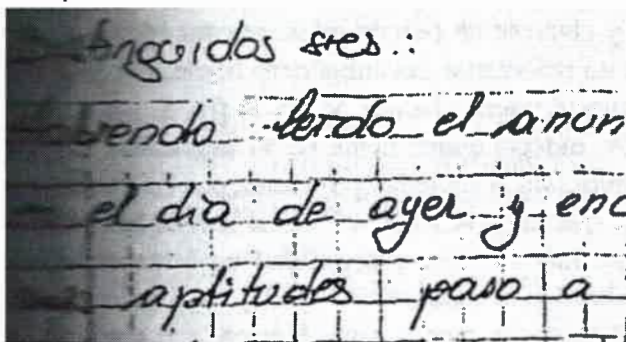 nguidos sres.:
biendo leido el anun
el dia de ayer y enc
aptitudes paso a